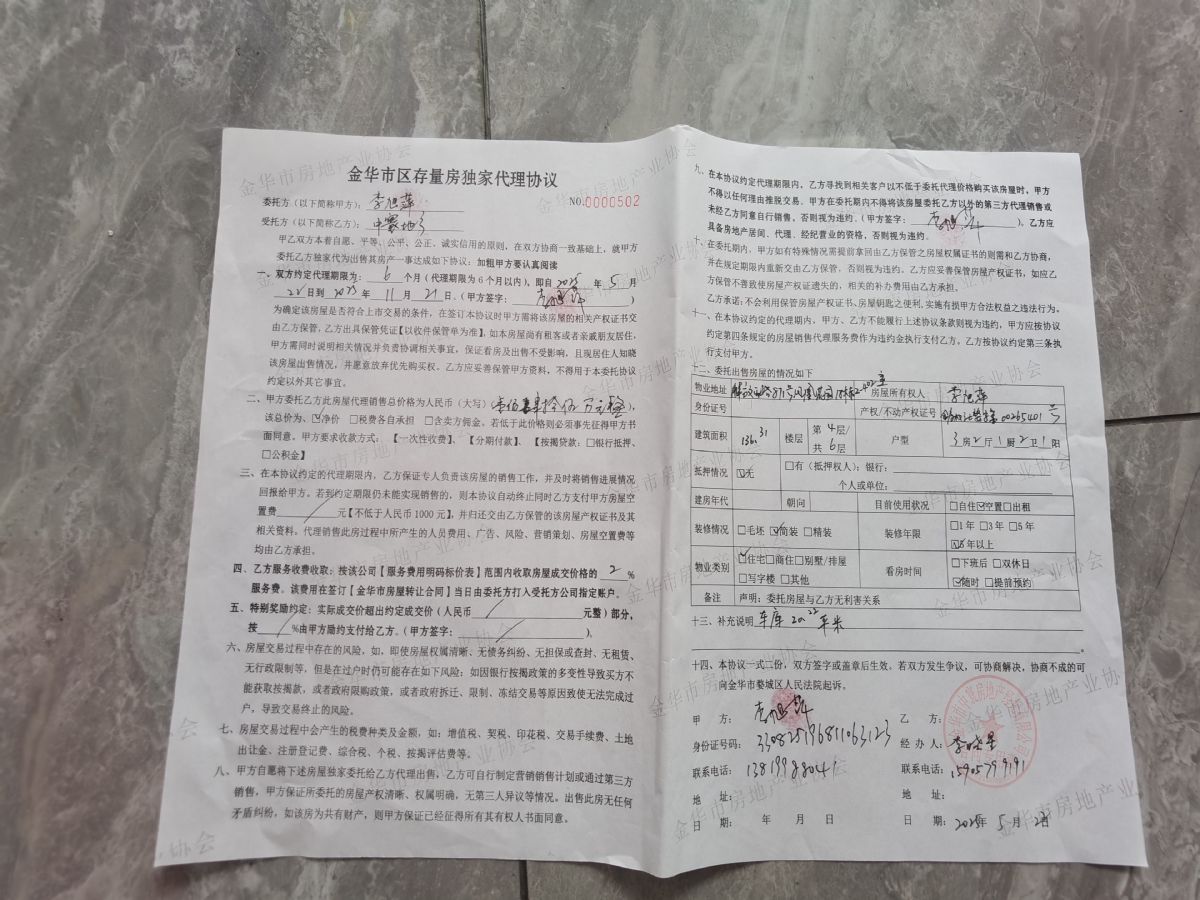 金华市区存量房独家代理协议
NO.0000502
委托方（以下简称甲方）：李旭萍
受托方（以下简称乙方）：中寰地产
甲乙双方本着自愿、平等、公平、公正、诚实信用的原则，在双方协商一致基础上，就甲方
委托乙方独家代为出售其房产一事达成如下协议：如租甲方要认真阅读
一、双方约定代理期限为：6个月（代理期限为6个月以内），即自2025年5月
22日到2025年11月21日。（甲方签字：李旭萍）
为确定该房屋是否符合上市交易的条件，在签订本协议时甲方需将该房屋的相关产权证书交
由乙方保管，乙方出具保管凭证【以收件保管单为准】，如本房屋尚有租客或者亲戚朋友居住，
甲方需同时说明相关情况并负责协调相关事宜，保证看房及出售不受影响，且现居住人知晓
该房屋出售情况，并愿意放弃优先购买权。乙方应妥善保管甲方资料，不得用于本委托协议
约定以外其它事宜。
二、甲方委托乙方此房屋代理销售总价格为人民币（大写）（壹佰 拾伍万元整），
该总价为、☑净价 □税费各自承担 □含卖方佣金。若低于此价格则必须事先征得甲方书
面同意。甲方要求收款方式：【一次性收费】、【分期付款】、【按揭贷款：□银行抵押、
□公积金】
三、在本协议约定的代理期限内，乙方保证专人负责该房屋的销售工作，并及时将销售进展情况
回报给甲方。若到约定期限仍未能实现销售的，则本协议自动终止同时乙方支付甲方房屋空
置费 / 元【不低于人民币1000元】，并归还交由乙方保管的该房屋产权证书及其
相关资料，代理销售此房过程中所产生的人员费用、广告、风险、营销策划、房屋空置费等
均由乙方承担。
四、乙方服务收费收取：按该公司【服务费用明码标价表】范围内收取房屋成交价格的2%
服务费。该费用在签订【金华市房屋转让合同】当日由委托方打入受托方公司指定账户。
五、特别奖励约定：实际成交价超出约定成交价（人民币 / 元整）部分，
按 / %由甲方励约支付给乙方。（甲方签字： / ），
六、房屋交易过程中存在的风险，如，即使房屋权属清晰、无债务纠纷、无担保或查封、无租赁、
无行政限制等，但是在过户时仍可能存在如下风险：如因银行按揭政策的多变性导致买方不
能获取按揭款，或者政府限购政策，或者政府拆迁、限制、冻结交易等原因致使无法完成过
户，导致交易终止的风险。
七、房屋交易过程中会产生的税费种类及金额，如：增值税、契税、印花税、交易手续费、土地
出让金、注册登记费、综合税、个税、按揭评估费等。
八、甲方自愿将下述房屋独家委托给乙方代理出售，乙方可自行制定营销销售计划或通过第三方
销售，甲方保证所委托的房屋产权清晰、权属明确，无第三人异议等情况。出售此房无任何
矛盾纠纷，如该房为共有财产，则甲方保证已经征得所有其有权人书面同意。
九、在本协议约定代理期限内，乙方寻找到相关客户以不低于委托代理价格购买该房屋时，甲方
不得以任何理由推脱交易。甲方在委托期内不得将该房屋委托乙方以外的第三方代理销售或
未经乙方同意自行销售，否则视为违约。（甲方签字：李旭萍），乙方应
具备房地产居间、代理、经纪营业的资格，否则视为违约。
十、在委托期内，甲方如有特殊情况需提前拿回由乙方保管之房屋权属证书的则需和乙方协商，
并在规定期限内重新交由乙方保管，否则视为违约。乙方应妥善保管房屋产权证书，如应乙
方保管不善致使房屋产权证遗失的，相关的补办费用由乙方承担。
乙方承诺：不会利用保管房屋产权证书、房屋钥匙之便利，实施有损甲方合法权益之违法行为。
十一、在本协议约定的代理期内，甲方、乙方不能履行上述协议条款则视为违约，甲方应按协议
约定第四条规定的房屋销售代理服务费作为违约金执行支付乙方，乙方按协议约定第三条执
行支付甲方。
十二、委托出售房屋的情况如下
物业地址 解放 871号凤凰花园 2-402室 房屋所有权人 李旭萍
身份证号 产权/不动产权证号 00265401号
建筑面积 136.31 楼层 第4层/共6层 户型 3房2厅1厨2卫1阳
抵押情况 ☑无 □有（抵押权人）：银行：
个人或单位：
建房年代 朝向 目前使用状况 □自住☑空置□出租
装修情况 □毛坯 ☑简装 □精装 装修年限 □1年□3年□5年
☑5年以上
物业类别 ☑住宅□商住□别墅/排屋
□写字楼 □其他 看房时间 □下班后 □双休日
☑随时 □提前预约
备注 声明：委托房屋与乙方无利害关系
十三、补充说明 车库20.22平米
十四、本协议一式二份，双方签字或盖章后生效。若双方发生争议，可协商解决，协商不成的可
向金华市婺城区人民法院起诉。
甲 方：李旭萍 乙 方：
身份证号码：330825196811063123 经 办 人：李晓星
联系电话：13819988041 联系电话：15905799191
地 址： 地 址：
日 期： 年 月 日 日 期：2025年5月22日
金华市房地产业协会